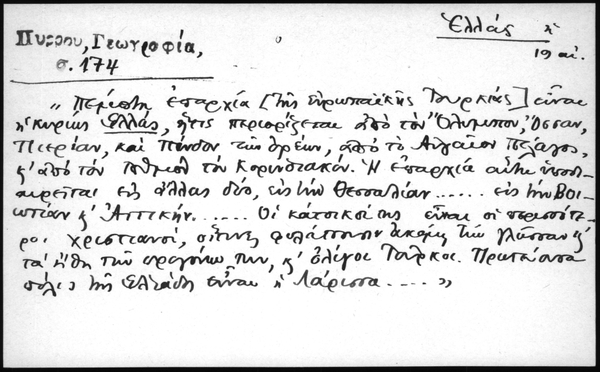 Πύρρου, Γεωγραφία,
σ. 174
Ἑλλάς ἡ
19 αἰ.
„ Πέμπτη ἐπαρχία [τῆς εὐρωπαϊκῆς Τουρκίας] εἶναι
ἡ κυρίως Ἑλλάς, ἥτις περιορίζεται ἀπὸ τὸν Ὄλυμπον, Ὄσσαν,
Πιερίαν, καὶ Πίνδον τῶν ὀρέων, ἀπὸ τὸ Αἰγαῖον Πέλαγος,
κ' ἀπὸ τὸν Ἰσθμὸν τὸν Κορινθιακόν. Ἡ ἐπαρχία αὕτη ὑποδι-
αιρεῖται εἰς ἄλλας δύο, εἰς τὴν Θεσσαλίαν...... εἰς τὴν Βοι-
ωτίαν κ' Ἀττικήν...... Οἱ κάτοικοί της εἶναι οἱ περισσότε-
ροι χριστιανοί, οἵτινες φυλάττουσιν ἀκόμη τὴν γλῶσσαν κ'
τὰ ἤθη τῶν προγόνων των, κ' ὀλίγοι Τοῦρκοι. Πρωτεύουσα
πόλις τῆς Ἑλλάδος εἶναι ἡ Λάρισσα.... »